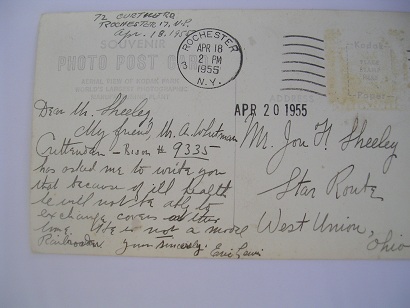 72
Rochester 17, N.Y.
Apr. 18. 1955
SOUVENIR
PHOTO POST CARD
ROCHESTER
APR 18
2 PM
1955
N.Y.
3
Kodak
APR 20 1955
ADDRESS
Dear Mr. Sheeley
My friend, Mr. A. Whitman
Bison # 9335
has asked me to write you
that because of ill health
he will not be able to
exchange covers at this
time. He is not a more
Railroader Yours Sincerely, Eric Lewis
Mr. Jon H. Sheeley
Star Route
West Union,
Ohio